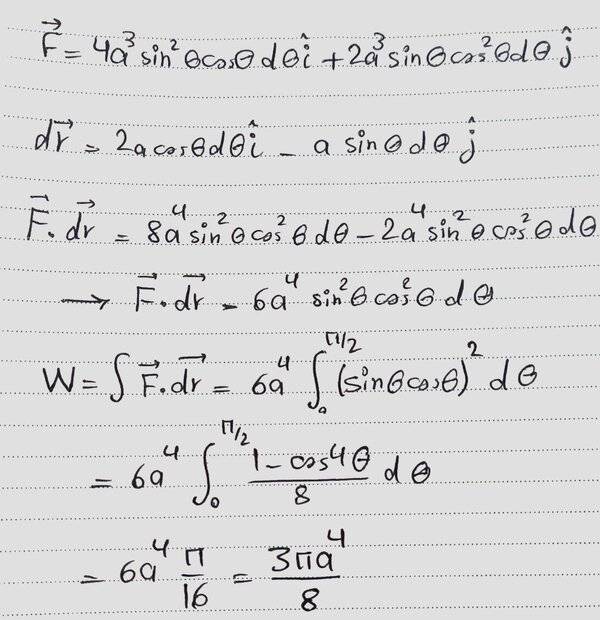 F⃗ = 4a³ sin²θ cosθ dθ î + 2a³ sinθ cos²θ dθ ĵ
dr⃗ = 2a cosθ dθ î - a sinθ dθ ĵ
F⃗ . dr⃗ = 8a⁴ sin²θ cos²θ dθ - 2a⁴ sin²θ cos²θ dθ
→ F⃗ . dr⃗ = 6a⁴ sin²θ cos²θ dθ
W = ∫ F⃗ . dr⃗ = 6a⁴ ∫₀^{π/2} (sinθ cosθ)² dθ
= 6a⁴ ∫₀^{π/2} (1 - cos4θ)/8 dθ
= 6a⁴ π/16 = 3πa⁴/8